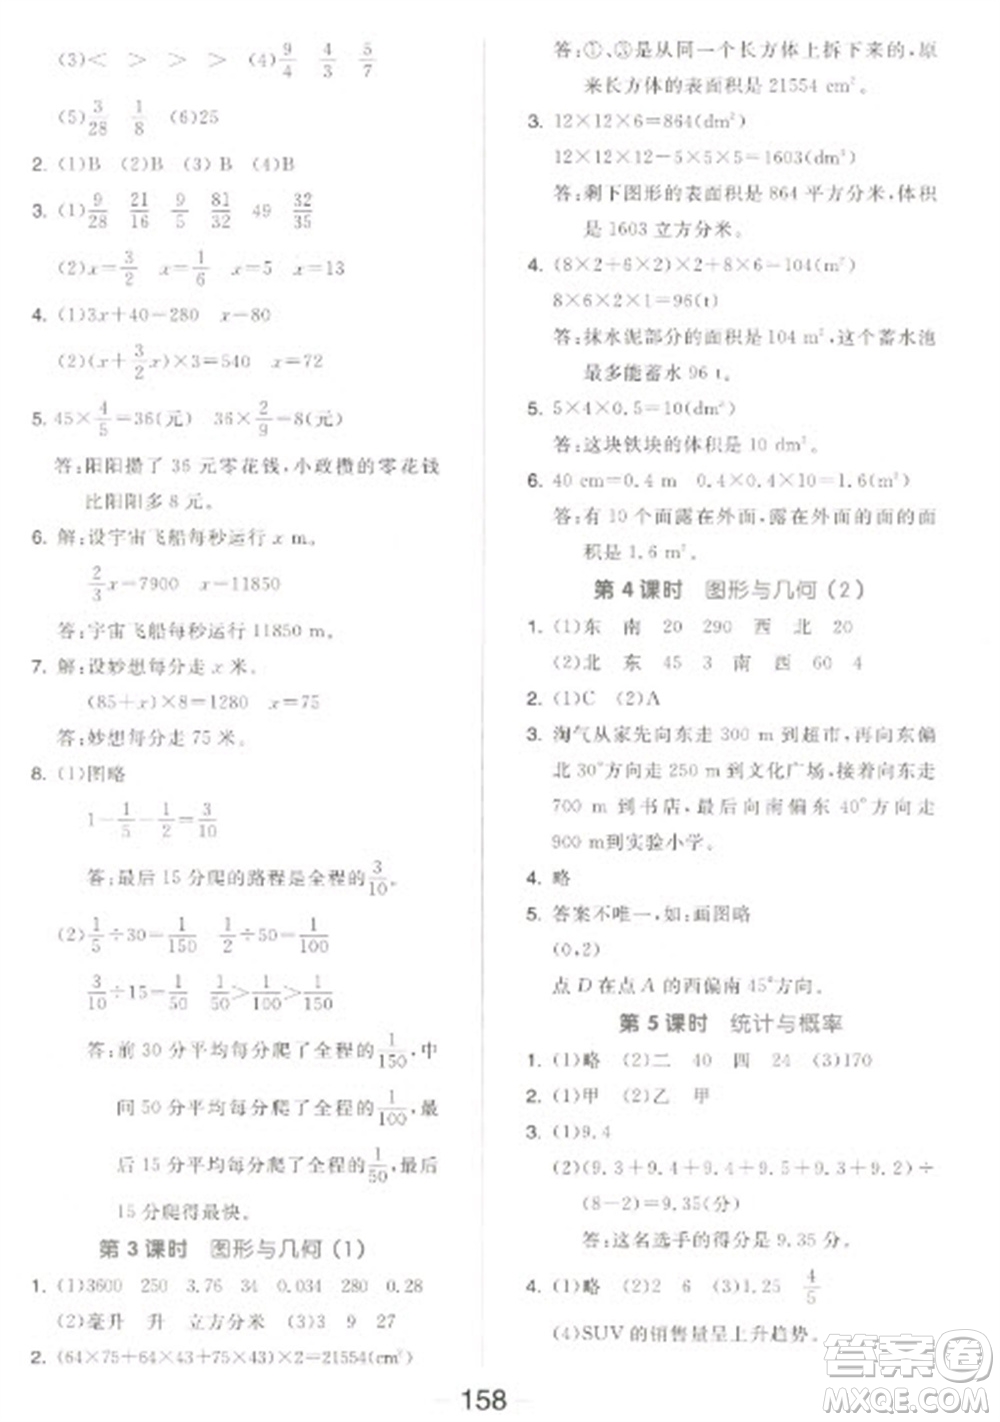 (3)< > > > (4)9/4 4/3 5/7
(5)3/28 1/8 (6)25
2. (1)B (2)B (3)B (4)B
3. (1)9/28 21/16 9/5 81/32 49 32/35
(2)x=3/2 x=1/6 x=5 x=13
4. (1)3x+40=280 x=80
(2)(x+3/2x)×3=540 x=72
5. 45×4/5=36(元) 36×2/9=8(元)
答:阳阳攒了 36 元零花钱,小政攒的零花钱
比阳阳多 8 元。
6. 解:设宇宙飞船每秒运行 x m。
2/3x=7900 x=11850
答:宇宙飞船每秒运行 11850 m。
7. 解:设妙想每分走 x 米。
(85+x)×8=1280 x=75
答:妙想每分走 75 米。
8. (1)图略
1-1/5-1/2=3/10
答:最后 15 分爬的路程是全程的3/10。
(2)1/5÷30=1/150 1/2÷50=1/100
3/10÷15=1/50 1/50>1/100>1/150
答:前 30 分平均每分爬了全程的1/150,中
间 50 分平均每分爬了全程的1/100,最
后 15 分平均每分爬了全程的1/50,最后
15 分爬得最快。
第 3 课时 图形与几何(1)
1. (1)3600 250 3.76 34 0.034 280 0.28
(2)毫升 升 立方分米 (3)3 9 27
2. (64×75+64×43+75×43)×2=21554(cm²)
答:①、③是从同一个长方体上拆下来的,原
来长方体的表面积是 21554 cm²。
3. 12×12×6=864(dm²)
12×12×12-5×5×5=1603(dm³)
答:剩下图形的表面积是 864 平方分米,体积
是 1603 立方分米。
4. (8×2+6×2)×2+8×6=104(m²)
8×6×2×1=96(t)
答:抹水泥部分的面积是 104 m²,这个蓄水池
最多能蓄水 96 t。
5. 5×4×0.5=10(dm³)
答:这块铁块的体积是 10 dm³。
6. 40 cm=0.4 m 0.4×0.4×10=1.6(m²)
答:有 10 个面露在外面,露在外面的面的面
积是 1.6 m²。
第 4 课时 图形与几何(2)
1. (1)东 南 20 290 西 北 20
(2)北 东 45 3 南 西 60 4
2. (1)C (2)A
3. 淘气从家先向东走 300 m到超市,再向东偏
北 30°方向走 250 m到文化广场,接着向东走
700 m到书店,最后向南偏东 40°方向走
900 m到实验小学。
4. 略
5. 答案不唯一,如:画图略
(0,2)
点 D 在点 A 的西偏南 45°方向。
第 5 课时 统计与概率
1. (1)略 (2)二 40 四 24 (3)170
2. (1)甲 (2)乙 甲
3. (1)9.4
(2)(9.3+9.4+9.4+9.5+9.3+9.2)÷
(8-2)=9.35(分)
答:这名选手的得分是 9.35 分。
4. (1)略 (2)2 6 (3)1.25 4/5
(4)SUV 的销售量呈上升趋势。
158
答案圈
MXQE.COM